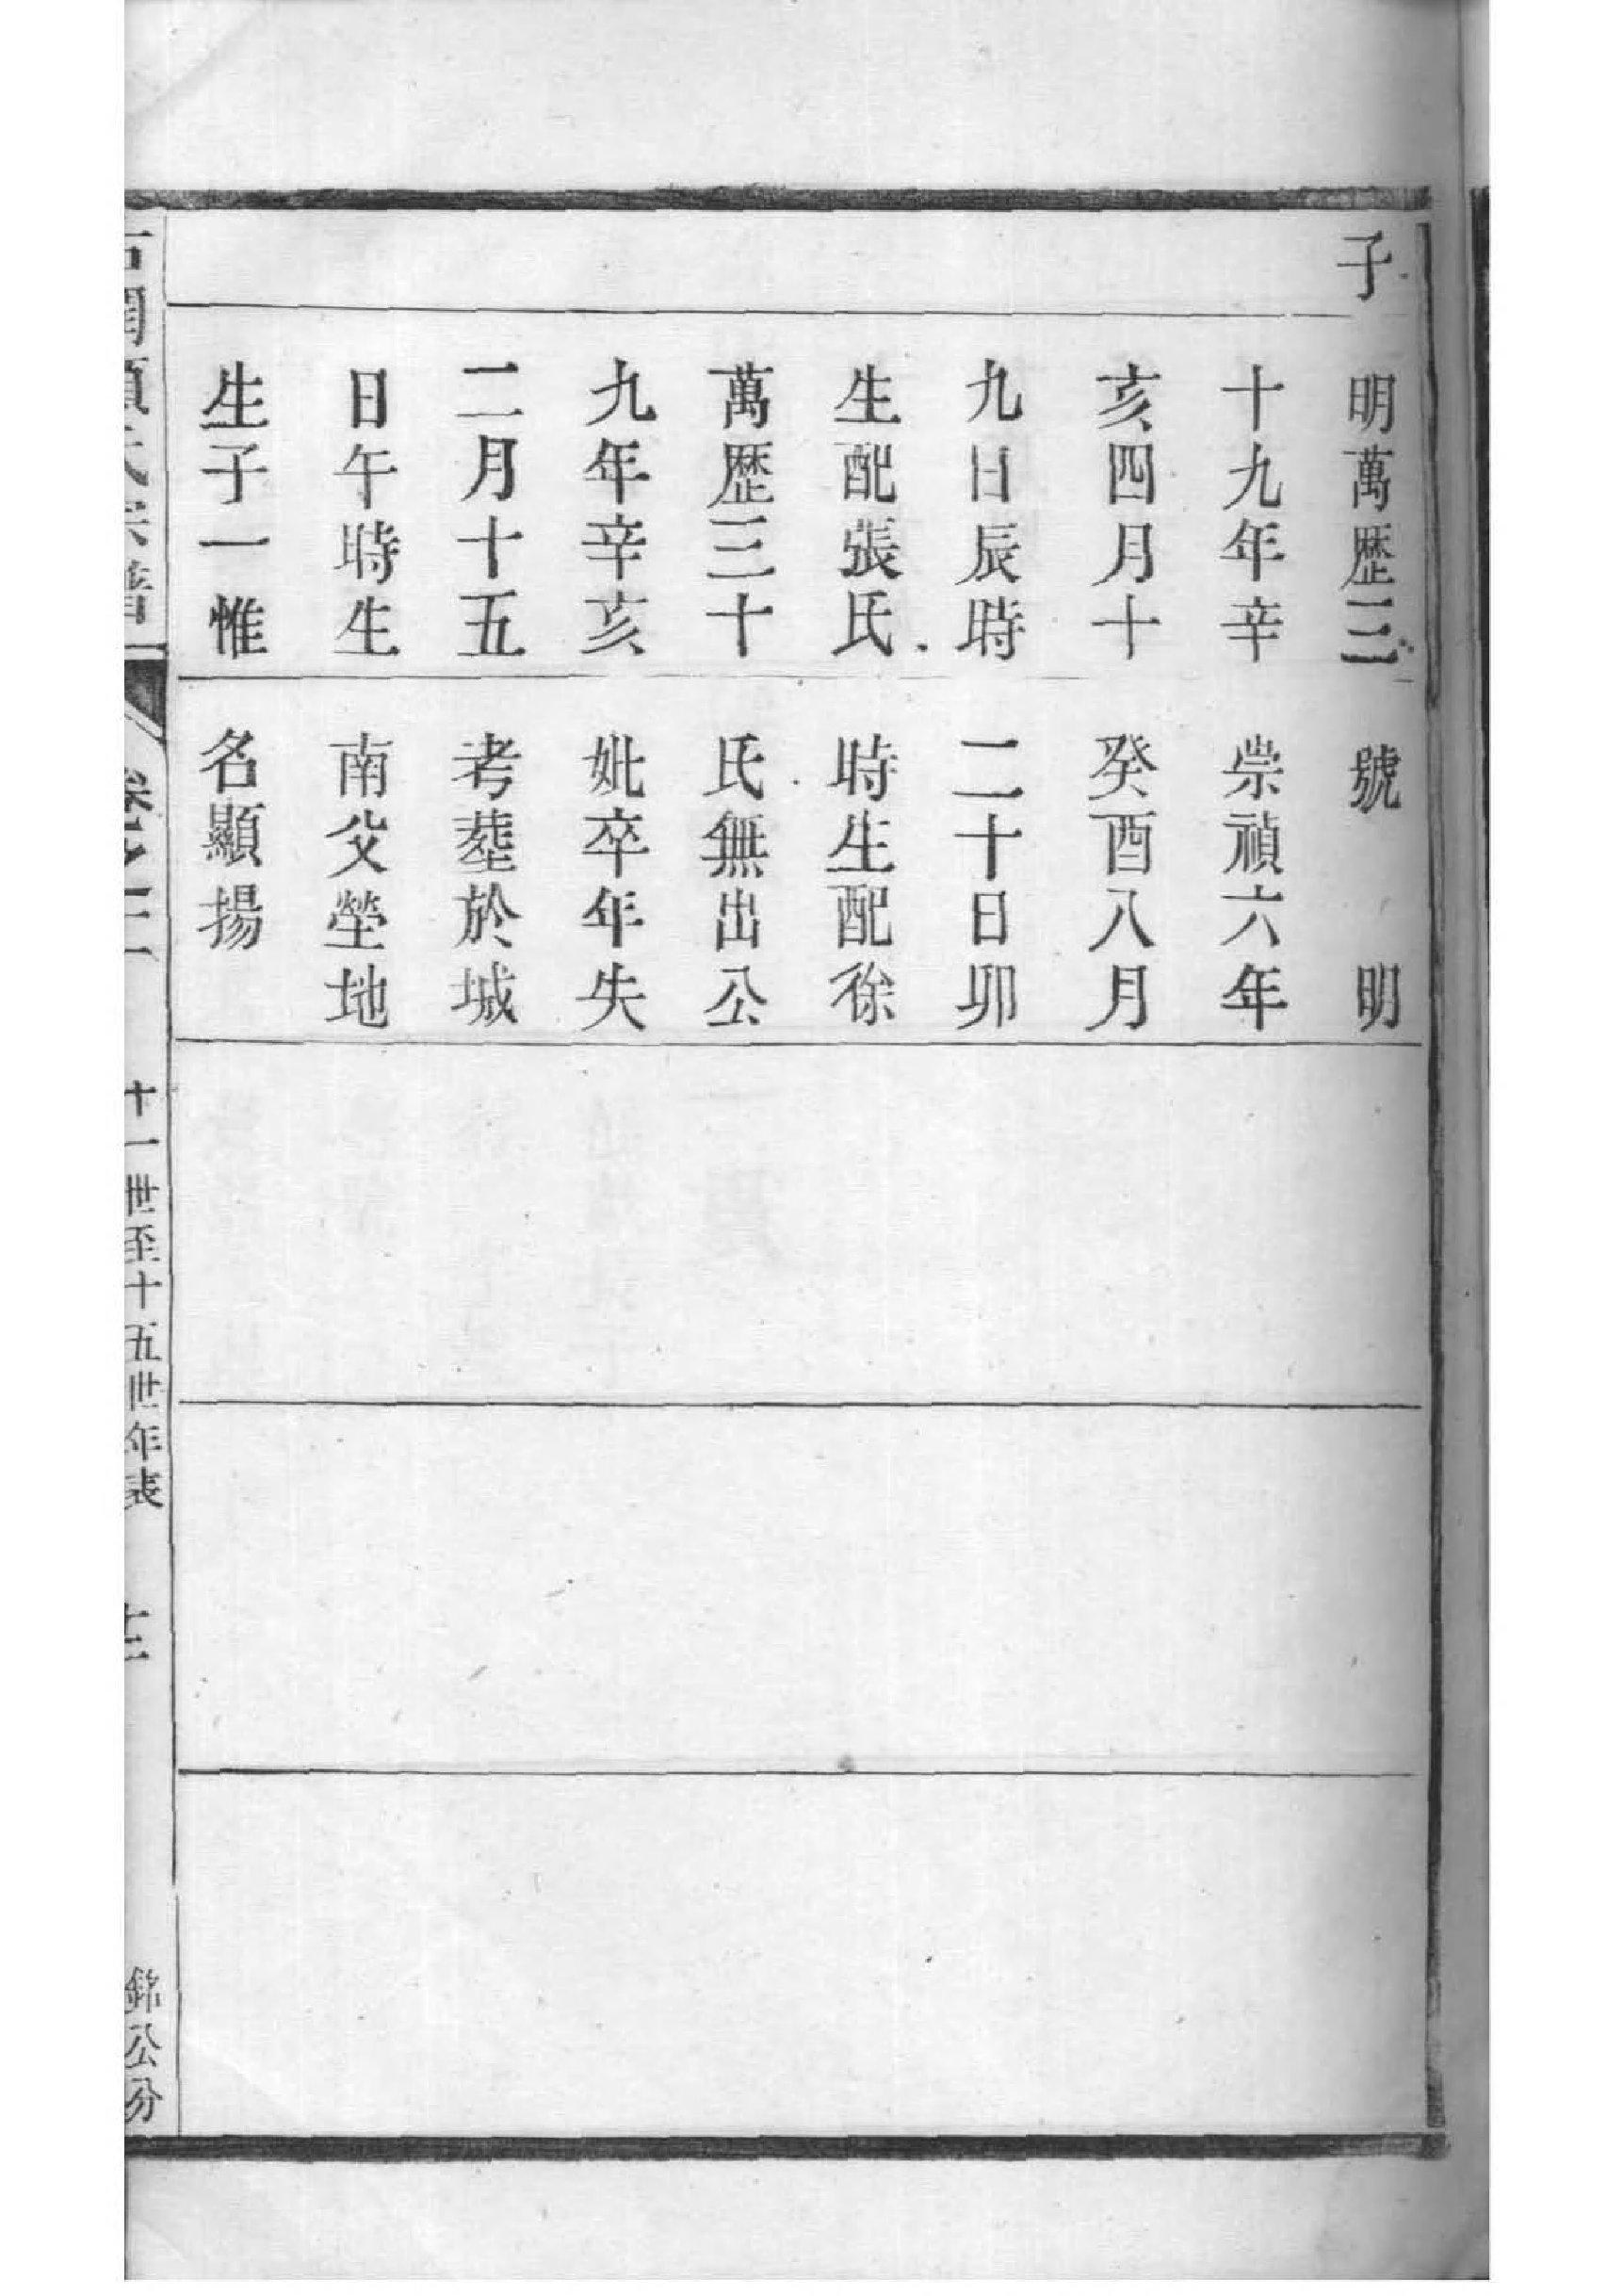 子
明萬歷三
十九年辛
亥四月十
九日辰時
生配張氏
萬歷三十
九年辛亥
二月十五
日午時生
生子一惟
號 明
崇禎六年
癸酉八月
二十日卯
時生配徐
氏無出公
妣卒年失
考塟於城
南父塋地
名顯揚
氏宗譜
十一世至十五世年表
銘公分